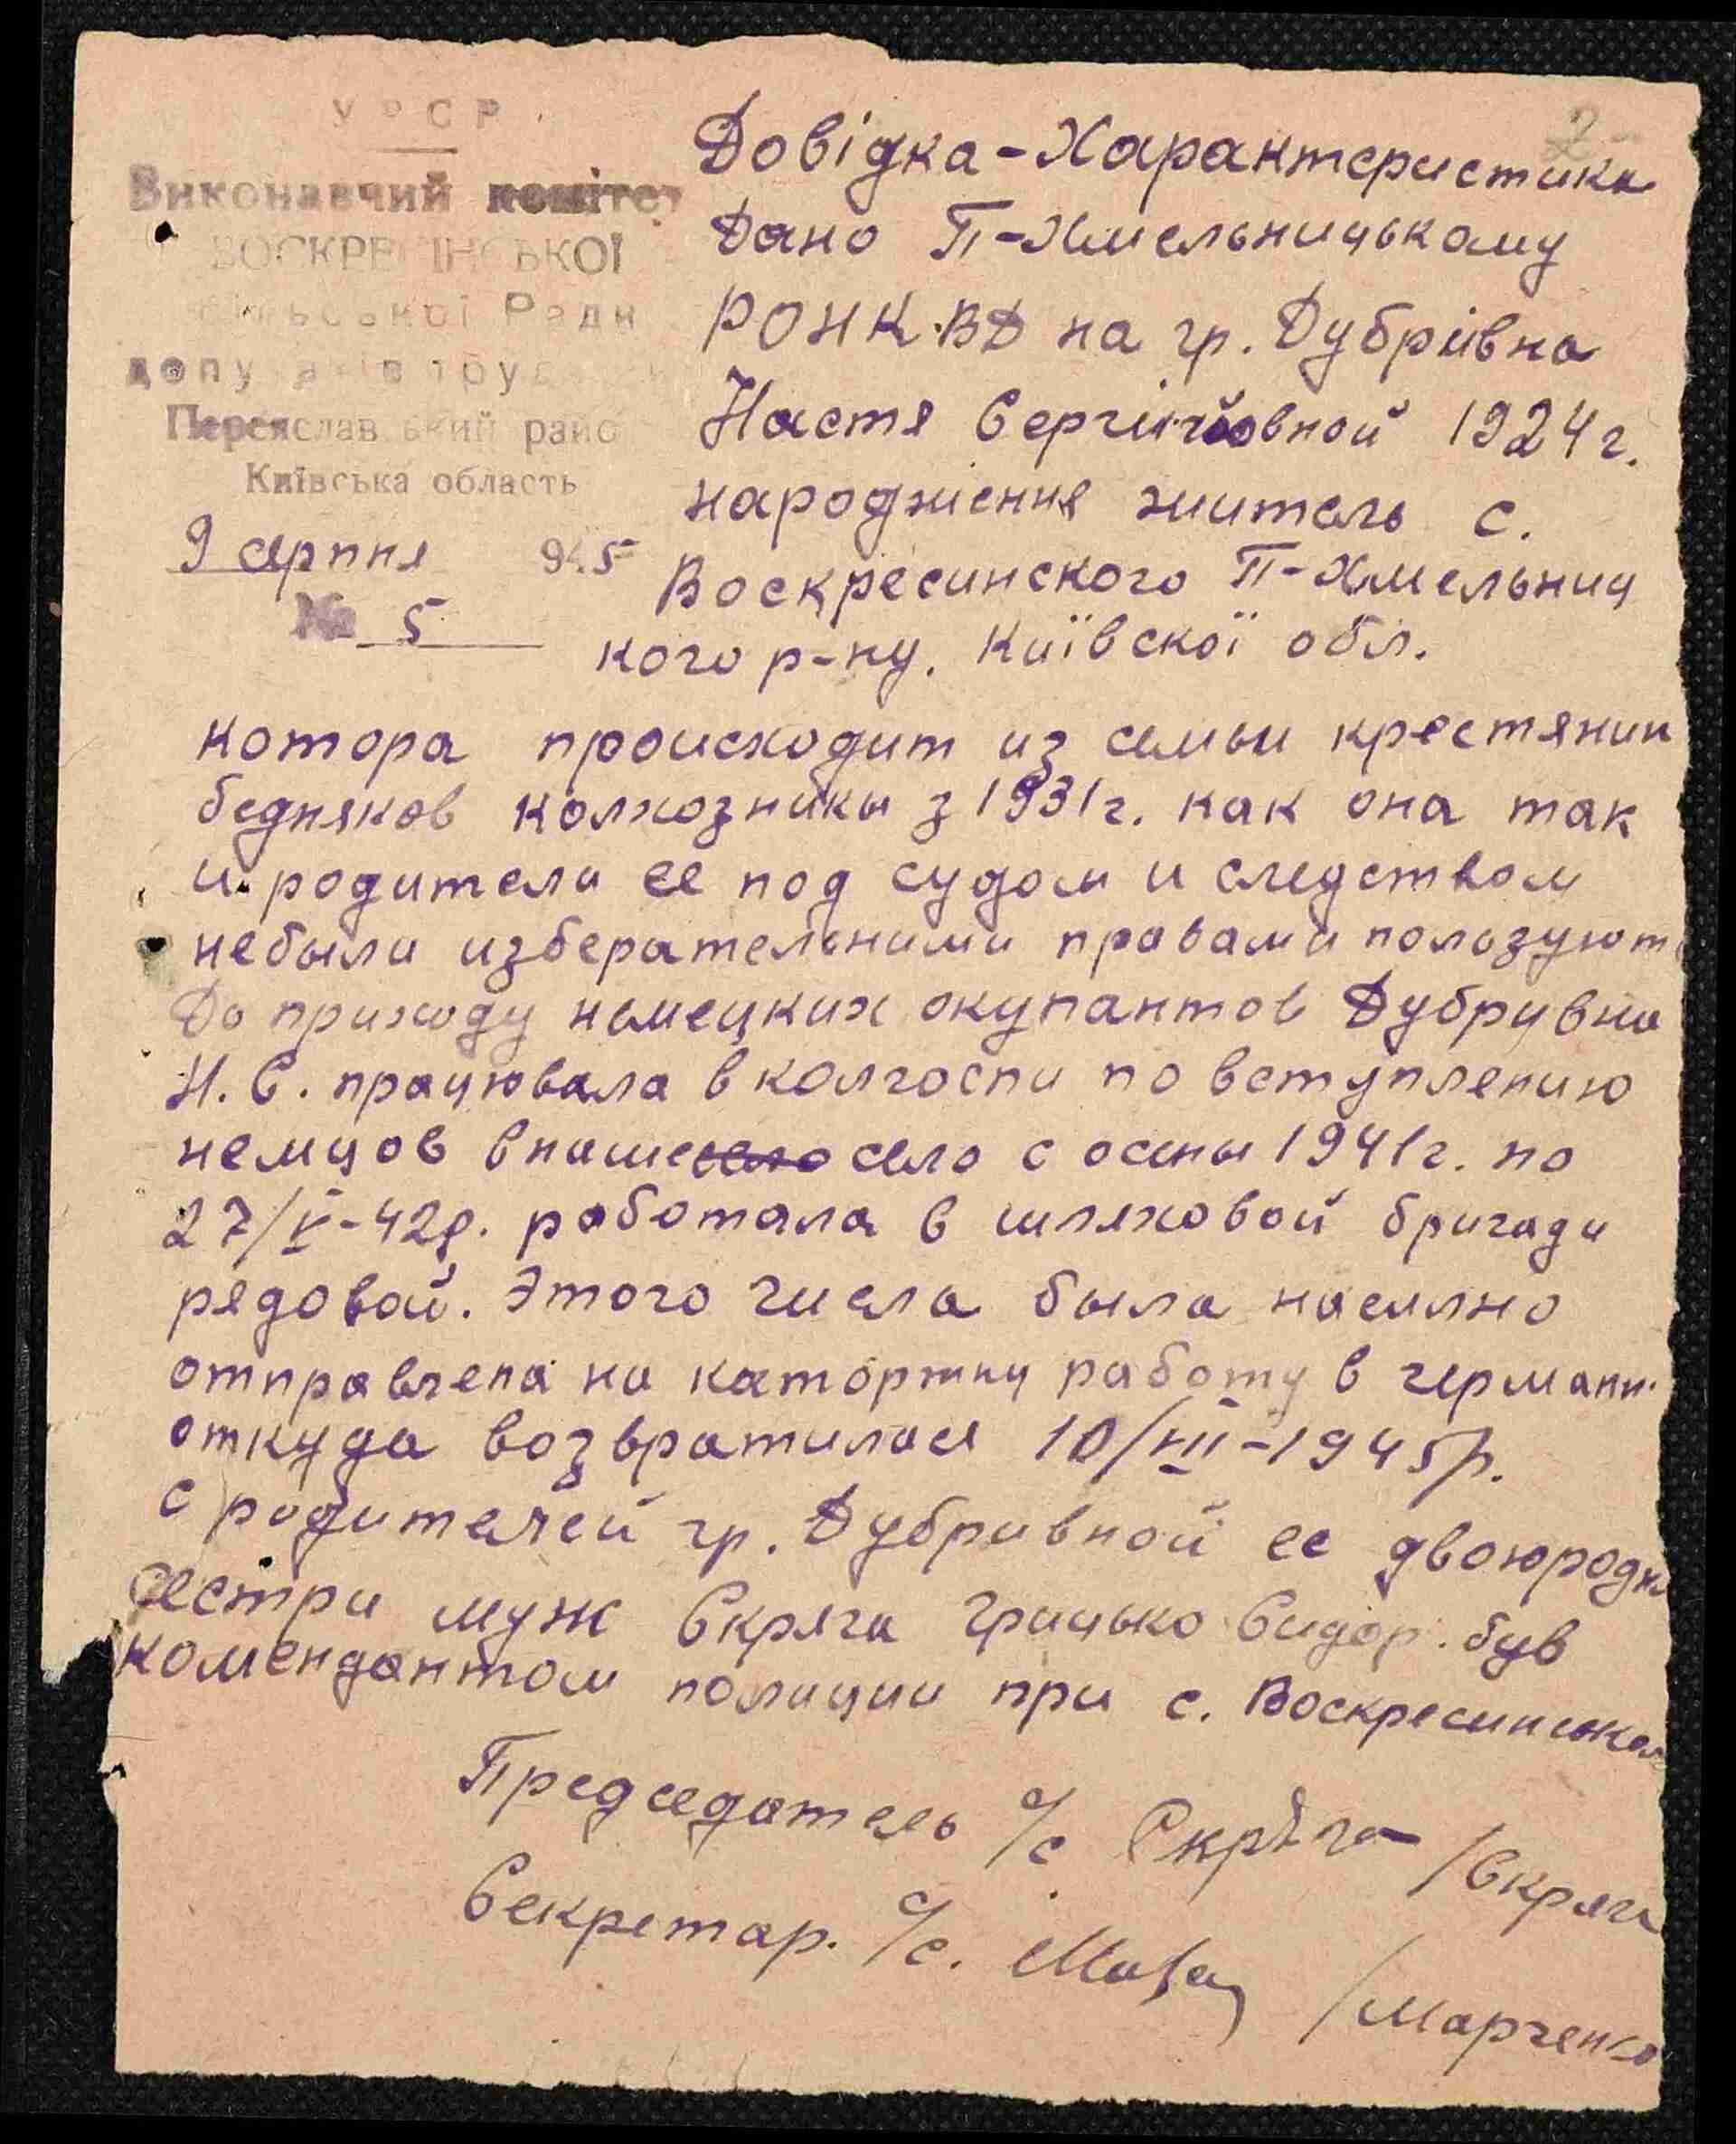 УРСР
Виконавчий комітет
ВОСКРЕСІНСЬКОЇ
сільської Ради
депутатів труд
Переяславський райо
Київська область
9 серпня 945
№ 5
2
Довідка-Характеристика
Дано П-Хмельницькому
РОНК.ВД на гр. Дубрівна
Настя Сергіійовной 1924 г.
народжения житель с.
Воскресинского П-Хмельниц
кого р-ну. Київскої обл.
котора происходит из семьи крестянин
бедняков колхозникы з 1931 г. как она так
и родители ее под судом и следством
небыли изберательними правами ползуют
До приходу немецких окупантов Дубрувна
Н. С. працювала в колгоспи по вступлению
немцов внаше село село с осены 1941 г. по
27/V-42р. работала в шляховой бригади
рядовой. Этого числа была насилно
отправлена на каторжну работу в германи
откуда возвратилася 10/VIII-1945р.
с родителей гр. Дубривной ее двоюродн
сестри муж Скряга Грицько Сидор. був
комендантом полиции при с. Воскресинском
Председатель с/с Скряга /Скряга
Секретар. с/с. /Марченко